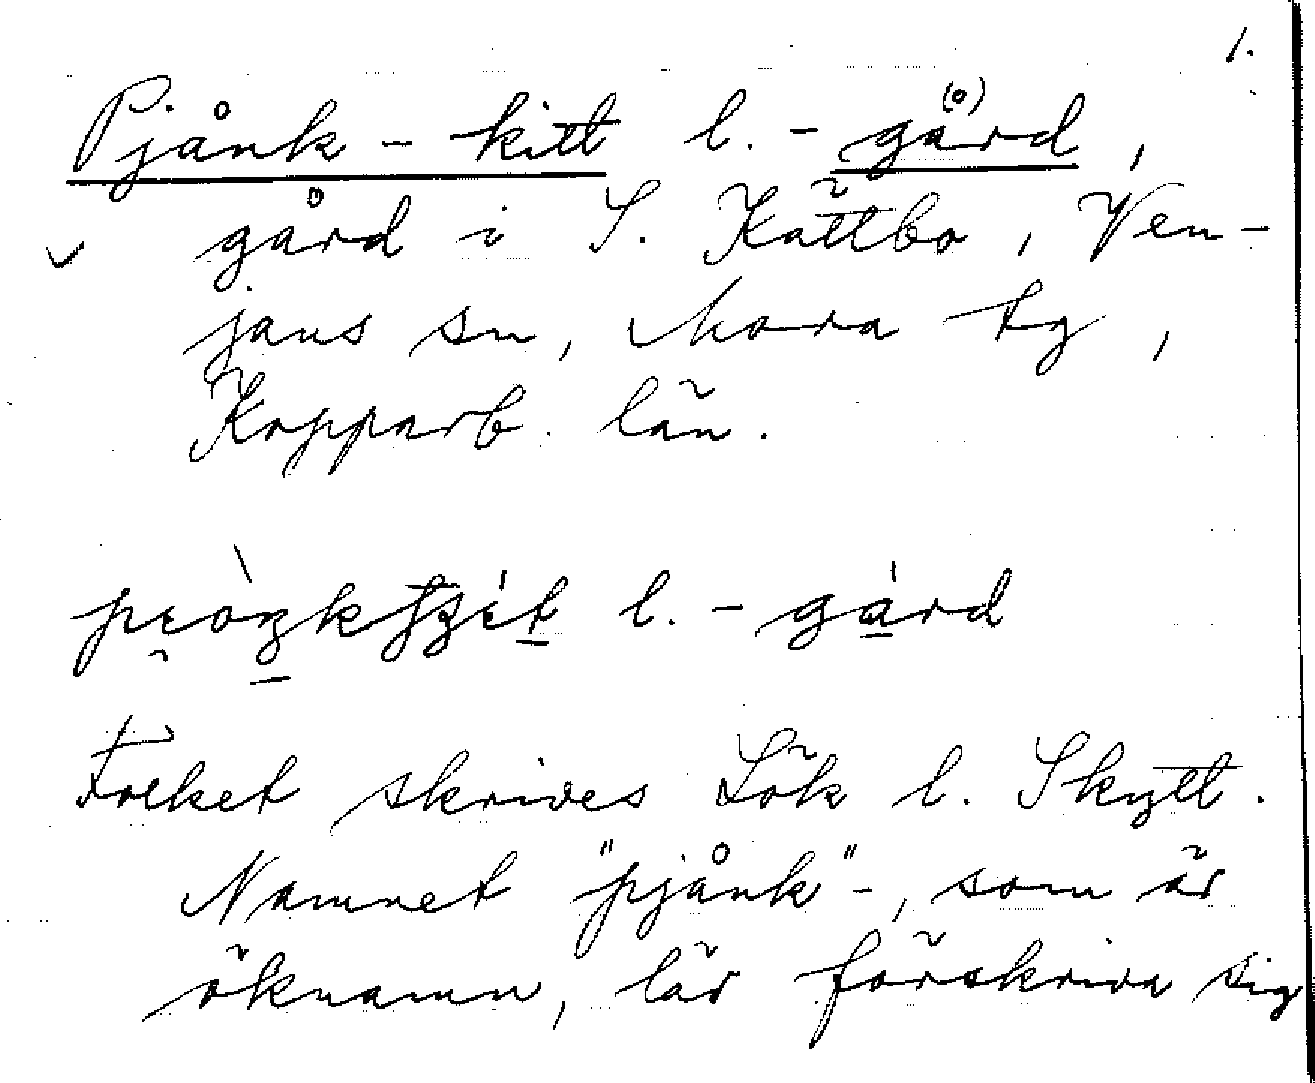 1.
Pjånk-kitt l. -gård,
gård i S. Kättbo, Ven-
jans sn, Mora tg,
Kopparb. län.
l. -gard
Folket skrives Lök l. Skytt.
Namnet "pjånk"-, som är
öknamn, lär förskriva sig